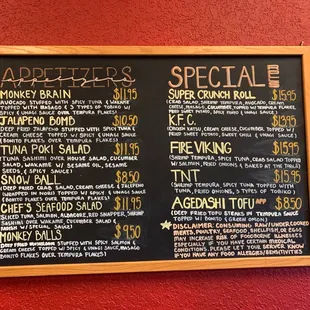 APPETIZERS
MONKEY BRAIN $11.95
AVOCADO STUFFED WITH SPICY TUNA & WAKAME
TOPPED WITH MASAGO & 3 TYPES OF TOBIKO W/
SPICY & UNAGI SAUCE OVER TEMPURA FLAKES
JALAPENO BOMB $10.50
DEEP FRIED JALAPENO STUFFED WITH SPICY TUNA &
CREAM CHEESE TOPPED W/ SPICY & UNAGI SAUCE
BONITO FLAKES OVER TEMPURA FLAKES
TUNA POKI SALAD $11.95
TUNA SASHIMI OVER HOUSE SALAD, CUCUMBER
SALAD, WAKAME W/ SESAME OIL, SESAME
SEEDS, & SPICY SAUCE
SNOW BALL $8.50
DEEP FRIED CRAB SALAD, CREAM CHEESE, & JALAPENO
WRAPPED IN NORI TOPPED W/ SPICY & UNAGI
SAUCE BONITO FLAKES OVER TEMPURA FLAKES
CHEF'S SEAFOOD SALAD $11.95
SLICED TUNA, SALMON, ALBACORE, RED SNAPPER, SHRIMP
SASHIMI OVER WAKAME, CUCUMBER SALAD &
W/ SPECIAL SAUCE
MONKEY BALLS $9.50
DEEP FRIED MUSHROOMS STUFFED WITH SPICY SALMON &
CREAM CHEESE TOPPED W/ SPICY AND UNAGI SAUCE, MASAGO
BONITO FLAKES OVER TEMPURA FLAKES
SPECIAL MENU
SUPER CRUNCH ROLL $15.95
(CRAB SALAD, SHRIMP TEMPURA, AVOCADO, CREAM
CHEESE, MASAGO, CUCUMBER, TOPPED WITH FRIED
SWEET POTATO, SWEET SPICY & UNAGI SAUCE)
K.F.C. $13.95
(CHICKEN KATSU, CREAM CHEESE, CUCUMBER, TOPPED W/
FRIED SWEET POTATO, SWEET SPICY & UNAGI SAUCE)
FIRE VIKING $15.95
(SHRIMP TEMPURA, SPICY TUNA, CRAB SALAD TOPPED
W/ SALMON, FRIED ONIONS & BAKED IN THE OVEN)
TNT $15.95
(SHRIMP TEMPURA, SPICY TUNA TOPPED WITH
TUNA, FRIED ONIONS, 3 TYPES OF TOBIKO)
AGEDASHI TOFU APP $8.50
(DEEP FRIED TOFU STEAKS IN TEMPURA SAUCE
TOPPED W/ BONITO & GREEN ONION)
DISCLAIMER: CONSUMING RAW/UNDERCOOKED
MEATS, POULTRY, SEAFOOD, SHELLFISH, OR EGGS
MAY INCREASE RISK OF FOODBORNE ILLNESSES
ESPECIALLY IF YOU HAVE CERTAIN MEDICAL
CONDITIONS. PLEASE LET YOUR SERVER KNOW
IF YOU HAVE ANY FOOD ALLERGIES/SENSITIVITIES